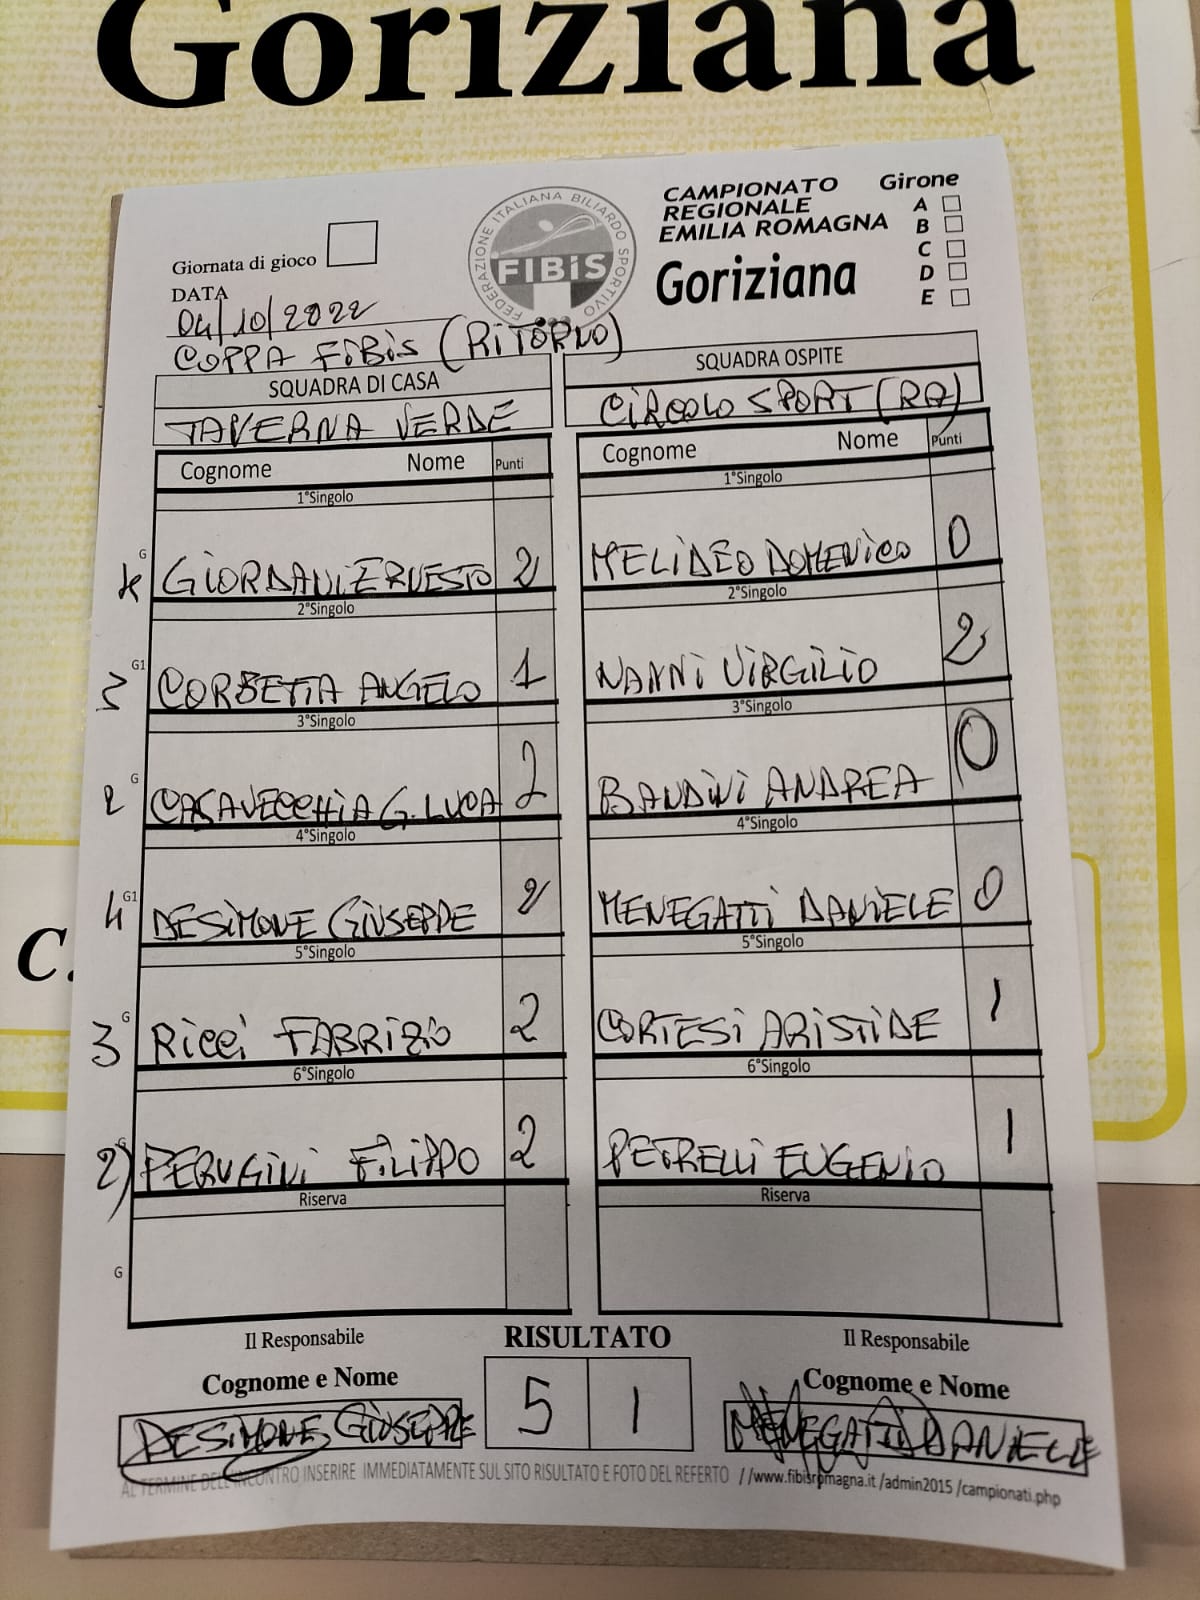 Goriziana
Giornata di gioco
DATA
04/10/2022
COPPA FIBIS (RITORNO)
FEDERAZIONE ITALIANA BILIARDO SPORTIVO
FIBiS
CAMPIONATO
REGIONALE
EMILIA ROMAGNA
Goriziana
Girone
A
B
C
D
E
SQUADRA DI CASA
SQUADRA OSPITE
TAVERNA VERDE
CIRCOLO SPORT (RA)
Cognome Nome Punti
Cognome Nome Punti
1°Singolo
1°Singolo
G GIORDANI ERNESTO 2
MELIDEO DOMENICO 0
2°Singolo
2°Singolo
3 G1 CORBETTA ANGELO 1
NANNI VIRGILIO 2
3°Singolo
3°Singolo
2 G CASAVECCHIA G.LUCA 2
BANDINI ANDREA 0
4°Singolo
4°Singolo
4 G1 DESIMONE GIUSEPPE 2
MENEGATTI DANIELE 0
5°Singolo
5°Singolo
3 G RICCI FABRIZIO 2
CORTESI ARISTIDE 1
6°Singolo
6°Singolo
2) G PERUGINI FILIPPO 2
PETRELLI EUGENIO 1
Riserva
Riserva
G
C.
Il Responsabile
RISULTATO
Il Responsabile
Cognome e Nome
Cognome e Nome
DESIMONE GIUSEPPE
5 1
MENEGATTI DANIELE
AL TERMINE DELL'INCONTRO INSERIRE IMMEDIATAMENTE SUL SITO RISULTATO E FOTO DEL REFERTO //www.fibisromagna.it /admin2015 /campionati.php